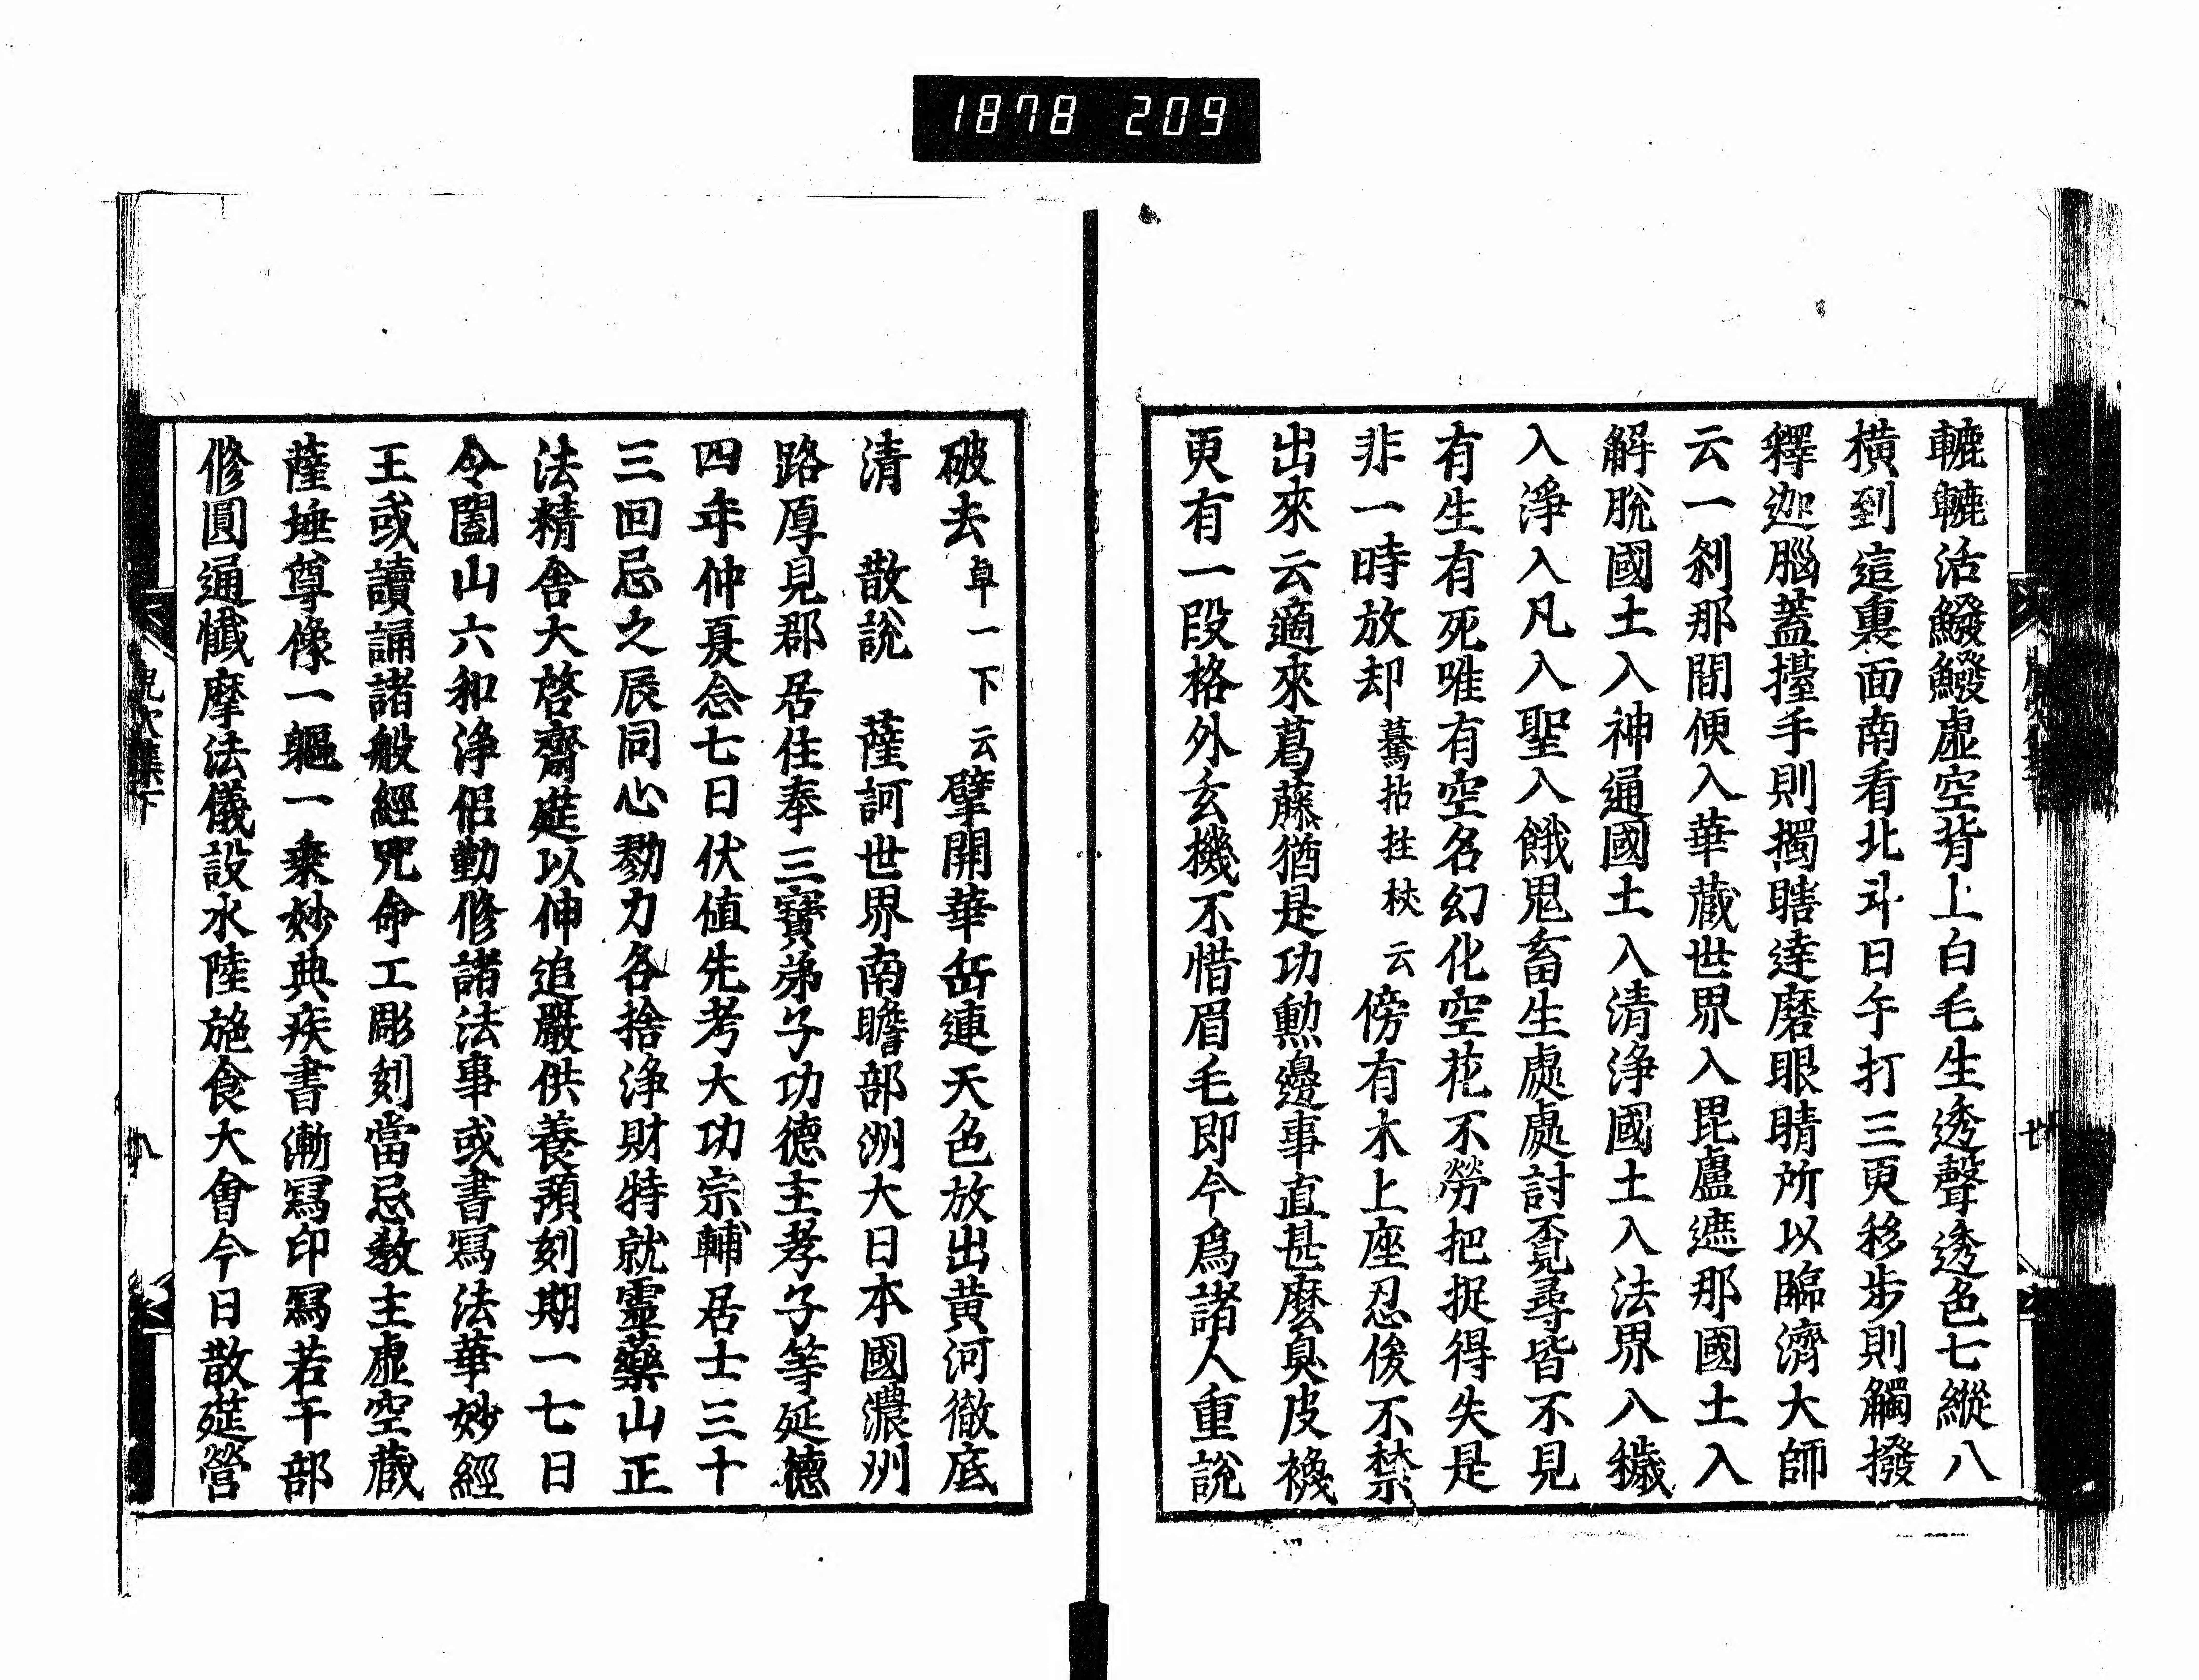 1878 209
轆轆活鱍鱍虛空背上白毛生透聲透色七縱八
橫到這裏面南看北斗日午打三更移步則觸撥
釋迦腦蓋擡手則擉瞎達磨眼睛所以臨濟大師
云一刹那間便入華藏世界入毘盧遮那國土入
解脫國土入神通國土入清淨國土入法界入穢
入淨入凡入聖入餓鬼畜生處處討覔尋皆不見
有生有死唯有空名幻化空花不勞把捉得失是
非一時放却驀拈拄杖云傍有木上座忍俊不禁
出來云適來葛藤猶是功勳邊事直甚麼臭皮襪
更有一段格外玄機不惜眉毛即今爲諸人重說
破去卓一下云擘開華岳連天色放出黃河徹底
清 散說 薩訶世界南瞻部洲大日本國濃州
路厚見郡居住奉三寶弟子功德主孝子等延德
四年仲夏念七日伏值先考大功宗輔居士三十
三回忌之辰同心勠力各捨淨財特就靈藥山正
法精舍大啓齋筵以伸追嚴供養預刻期一七日
令闔山六和淨侶勤修諸法事或書寫法華妙經
王或讀誦諸般經咒命工彫刻當忌教主虛空藏
薩埵尊像一軀一乘妙典疾書漸寫印寫若干部
修圓通懺摩法儀設水陸施食大會今日散筵營
集下
八